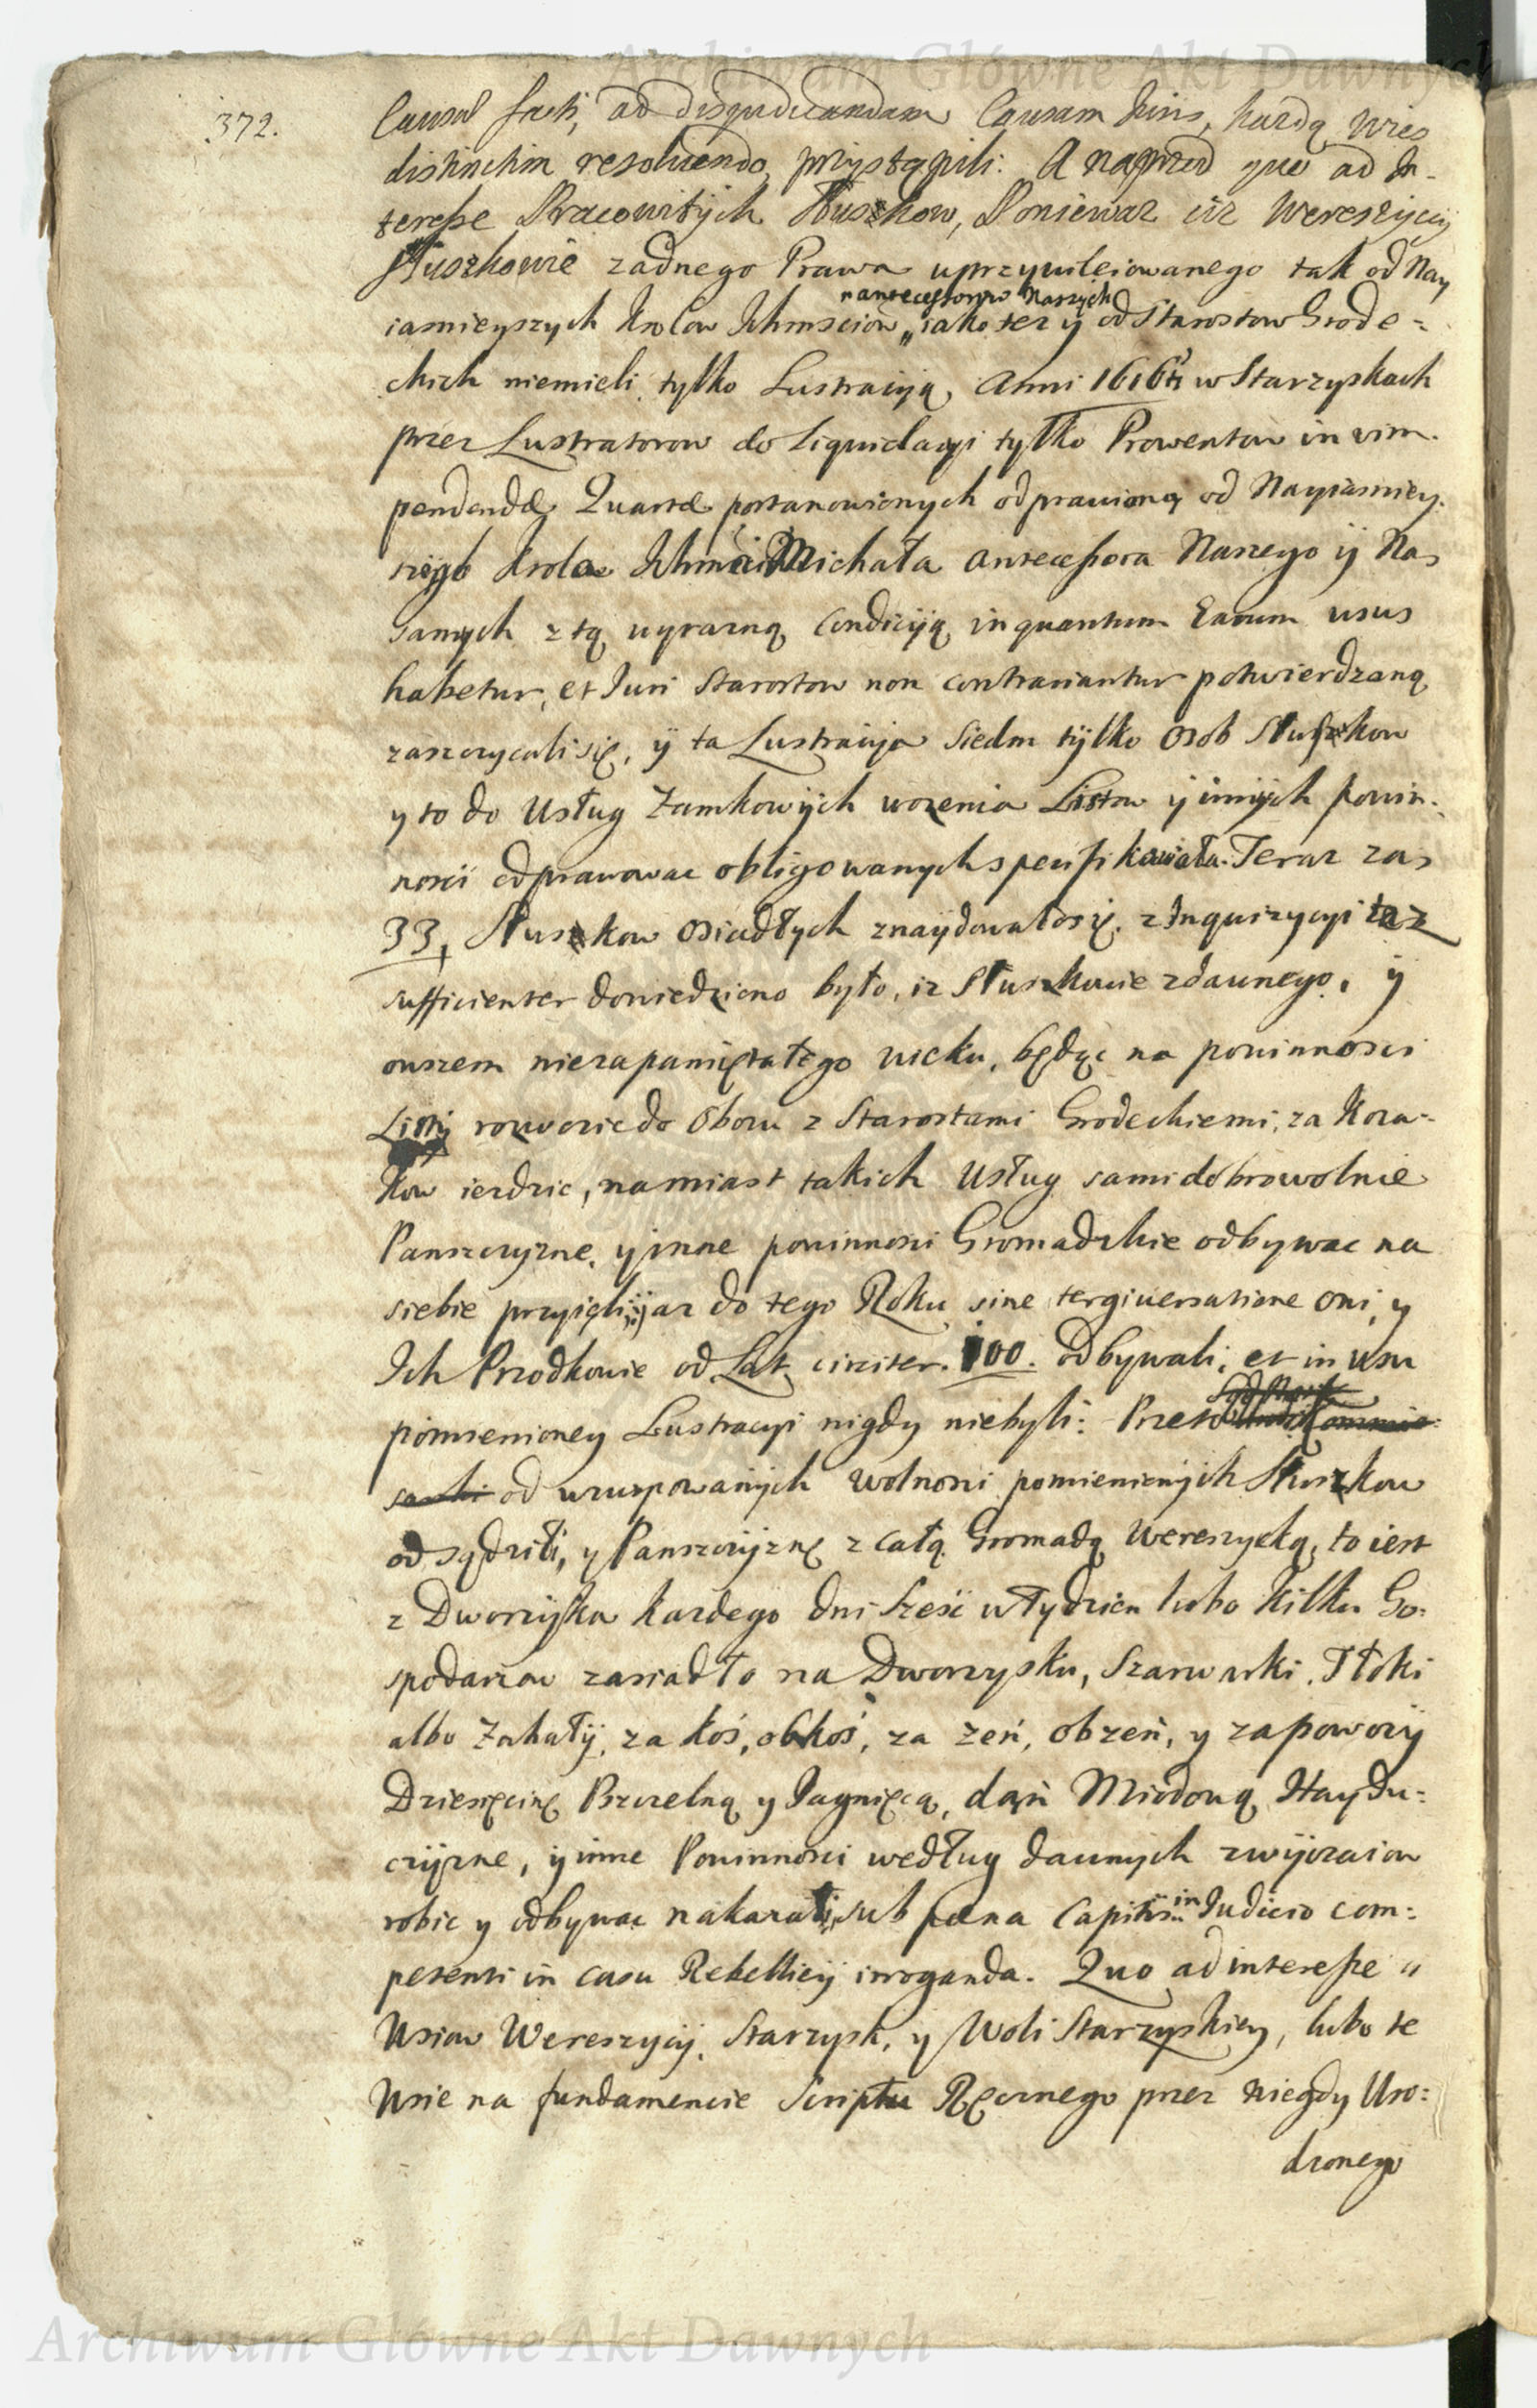 Archiwum Główne Akt Dawnych
372.
Causae facti, ad disjudicandam Causam Juris, kazdą wies
distinctim resolvendo, przystąpili: A naprzod quo ad In-
teresse Pracowitych Służkow, Poniewaz ciż Wereszyccy
Służkowie zadnego Prawa uprzywileiowanego tak od Nay
iasnieyszych Krolow Ichmsciow „ iako tez y od Starostow Grode=
antecessorow Naszych
ckich niemieli tylko Lustracyią Anni 1616ti w Starzyskach
przez Lustratorow do Liquidacyi tylko Prowentow in vim
pendendae Quartae postanowionych odprawioną od Nayiasniey-
szego Krola Ichmci Michała Antecessora Naszego ÿ Na
samych z tą wyrazną Condicyią in quantum Earum usus
habetur, et Juri Starostow non contrariantur potwierdzaną
zaszczycali się, ÿ ta Lustracyia Siedm tylko Osob Służkow
y to do Usług Zamkowych wozenia Listow y innych powin-
nosci odprawowac obligowanych specifikowała. Teraz zas
33, Służkow Osiadłych znaydowało się. z Inquizycyi tez
sufficienter dowiedziono było, iz Służkowie zdawnego, ÿ
owszem niezapamiętałego wieku, będąc na powinnosci
Listy rozwozic do Obozu z Starostami Grodeckiemi, za Koza-
kow iezdzic, na miast takich Usług sami dobrowolnie
Panszczyzne, y inne powinnosci Gromadzkie odbywac na
siebie przyięli, ÿ az do tego Roku sine tergiversatione oni, y
Ich Przodkowie od Lat circiter. 100. odbywali, et in usu
pomienioney Lustracyi nigdy niebyli: Przeto
od uzurpowanych wolnosci pomienionych Służkow
odsądzili, y Panszczyznę z całą Gromadą Wereszycką, to iest
z Dworzyska kazdego dni szesć w Tydzien lubo kilku Go-
spodarzow zasiadło na Dworzysku, Szarwarki, Tłoki
albo Zakały, za koś, obkoś, za żeń, obzeń, y zapowozy
Dziesięcinę Pszczelną y Jagnięcą, dań Miodową Haydu=
czyzne, y inne Powinnosci według dawnych zwyczaiow
robic y odbywac nakazali, sub paena Capitis in Judicio com=
petenti in casu Rebelliey irroganda. Quo ad interesse „
Wsiow Wereszycy, Starzysk, y Woli Starzyskiey, lubo te
Wsie na fundamencie Scriptu Ręcznego przez niegdy Uro=
dzonego
Archiwum Główne Akt Dawnych